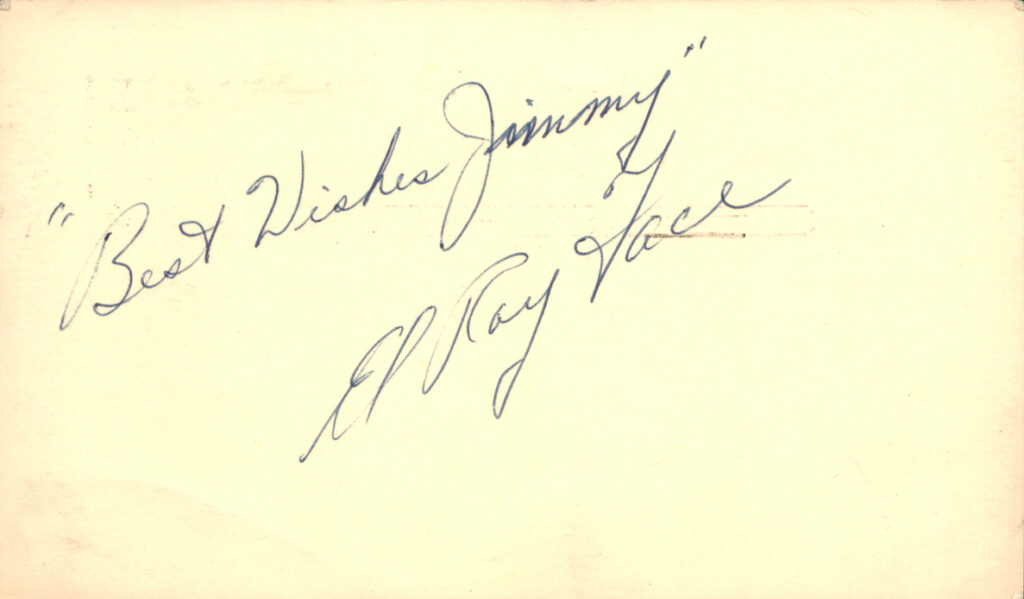 "Best Wishes Jimmy"
El Roy Face